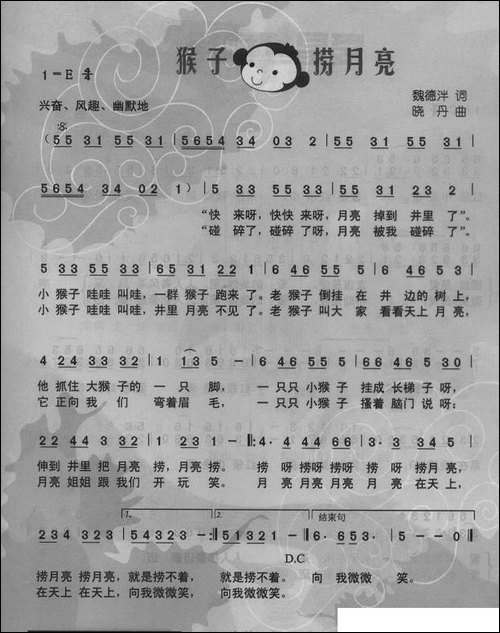 猴子捞月亮
1=E 2/4
兴奋、风趣、幽默地
魏德泮 词
晓丹 曲
(55 31 55 31 | 5654 34 | 03 2 | 55 31 55 31 |
5654 34 | 02 1) | 5 33 55 33 | 55 31 23 2 |
“快 来呀，快快 来呀，月亮 掉到 井里 了”。
“碰 碎了，碰碎 了呀，月亮 被我 碰碎 了”。
5 33 55 33 | 65 31 22 1 | 6 46 55 5 | 6 46 55 5 |
小 猴子 哇哇 叫哇，一群 猴子 跑来 了。老 猴子 倒挂 在 井 边的 树上，
小 猴子 哇哇 叫哇，井里 月亮 不见 了。老 猴子 叫大 家 看看 天上 月亮，
4 24 33 32 | 1 13 5 - | 6 46 55 5 | 66 46 5 30 |
他 抓住 大猴 子的 一 只 脚， 一 只只 小猴 子 挂成 长梯 子 呀，
它 正向 我 们 弯着 眉 毛， 一 只只 小猴 子 搔着 脑门 说 呀：
22 44 3 32 | 1 23 1 - :‖ 4. 4 44 66 | 3. 3 34 5 |
伸到 井里 把 月亮 捞，月亮 捞。 捞 呀 捞呀 捞呀 捞月亮，
月亮 姐姐 跟 我们 开 玩 笑。 月 亮 月亮 月亮 在天 上，
234 323 | 54323 - :‖ 51321 - ‖ 6. 653. | 5 - - 0 ‖
1.
2.
结束句
D.C
捞月亮 捞月亮，就是 捞不着， 就是 捞不着。 向 我微微 笑。
在天上 在天上，向我 微微笑， 向我 微微笑。